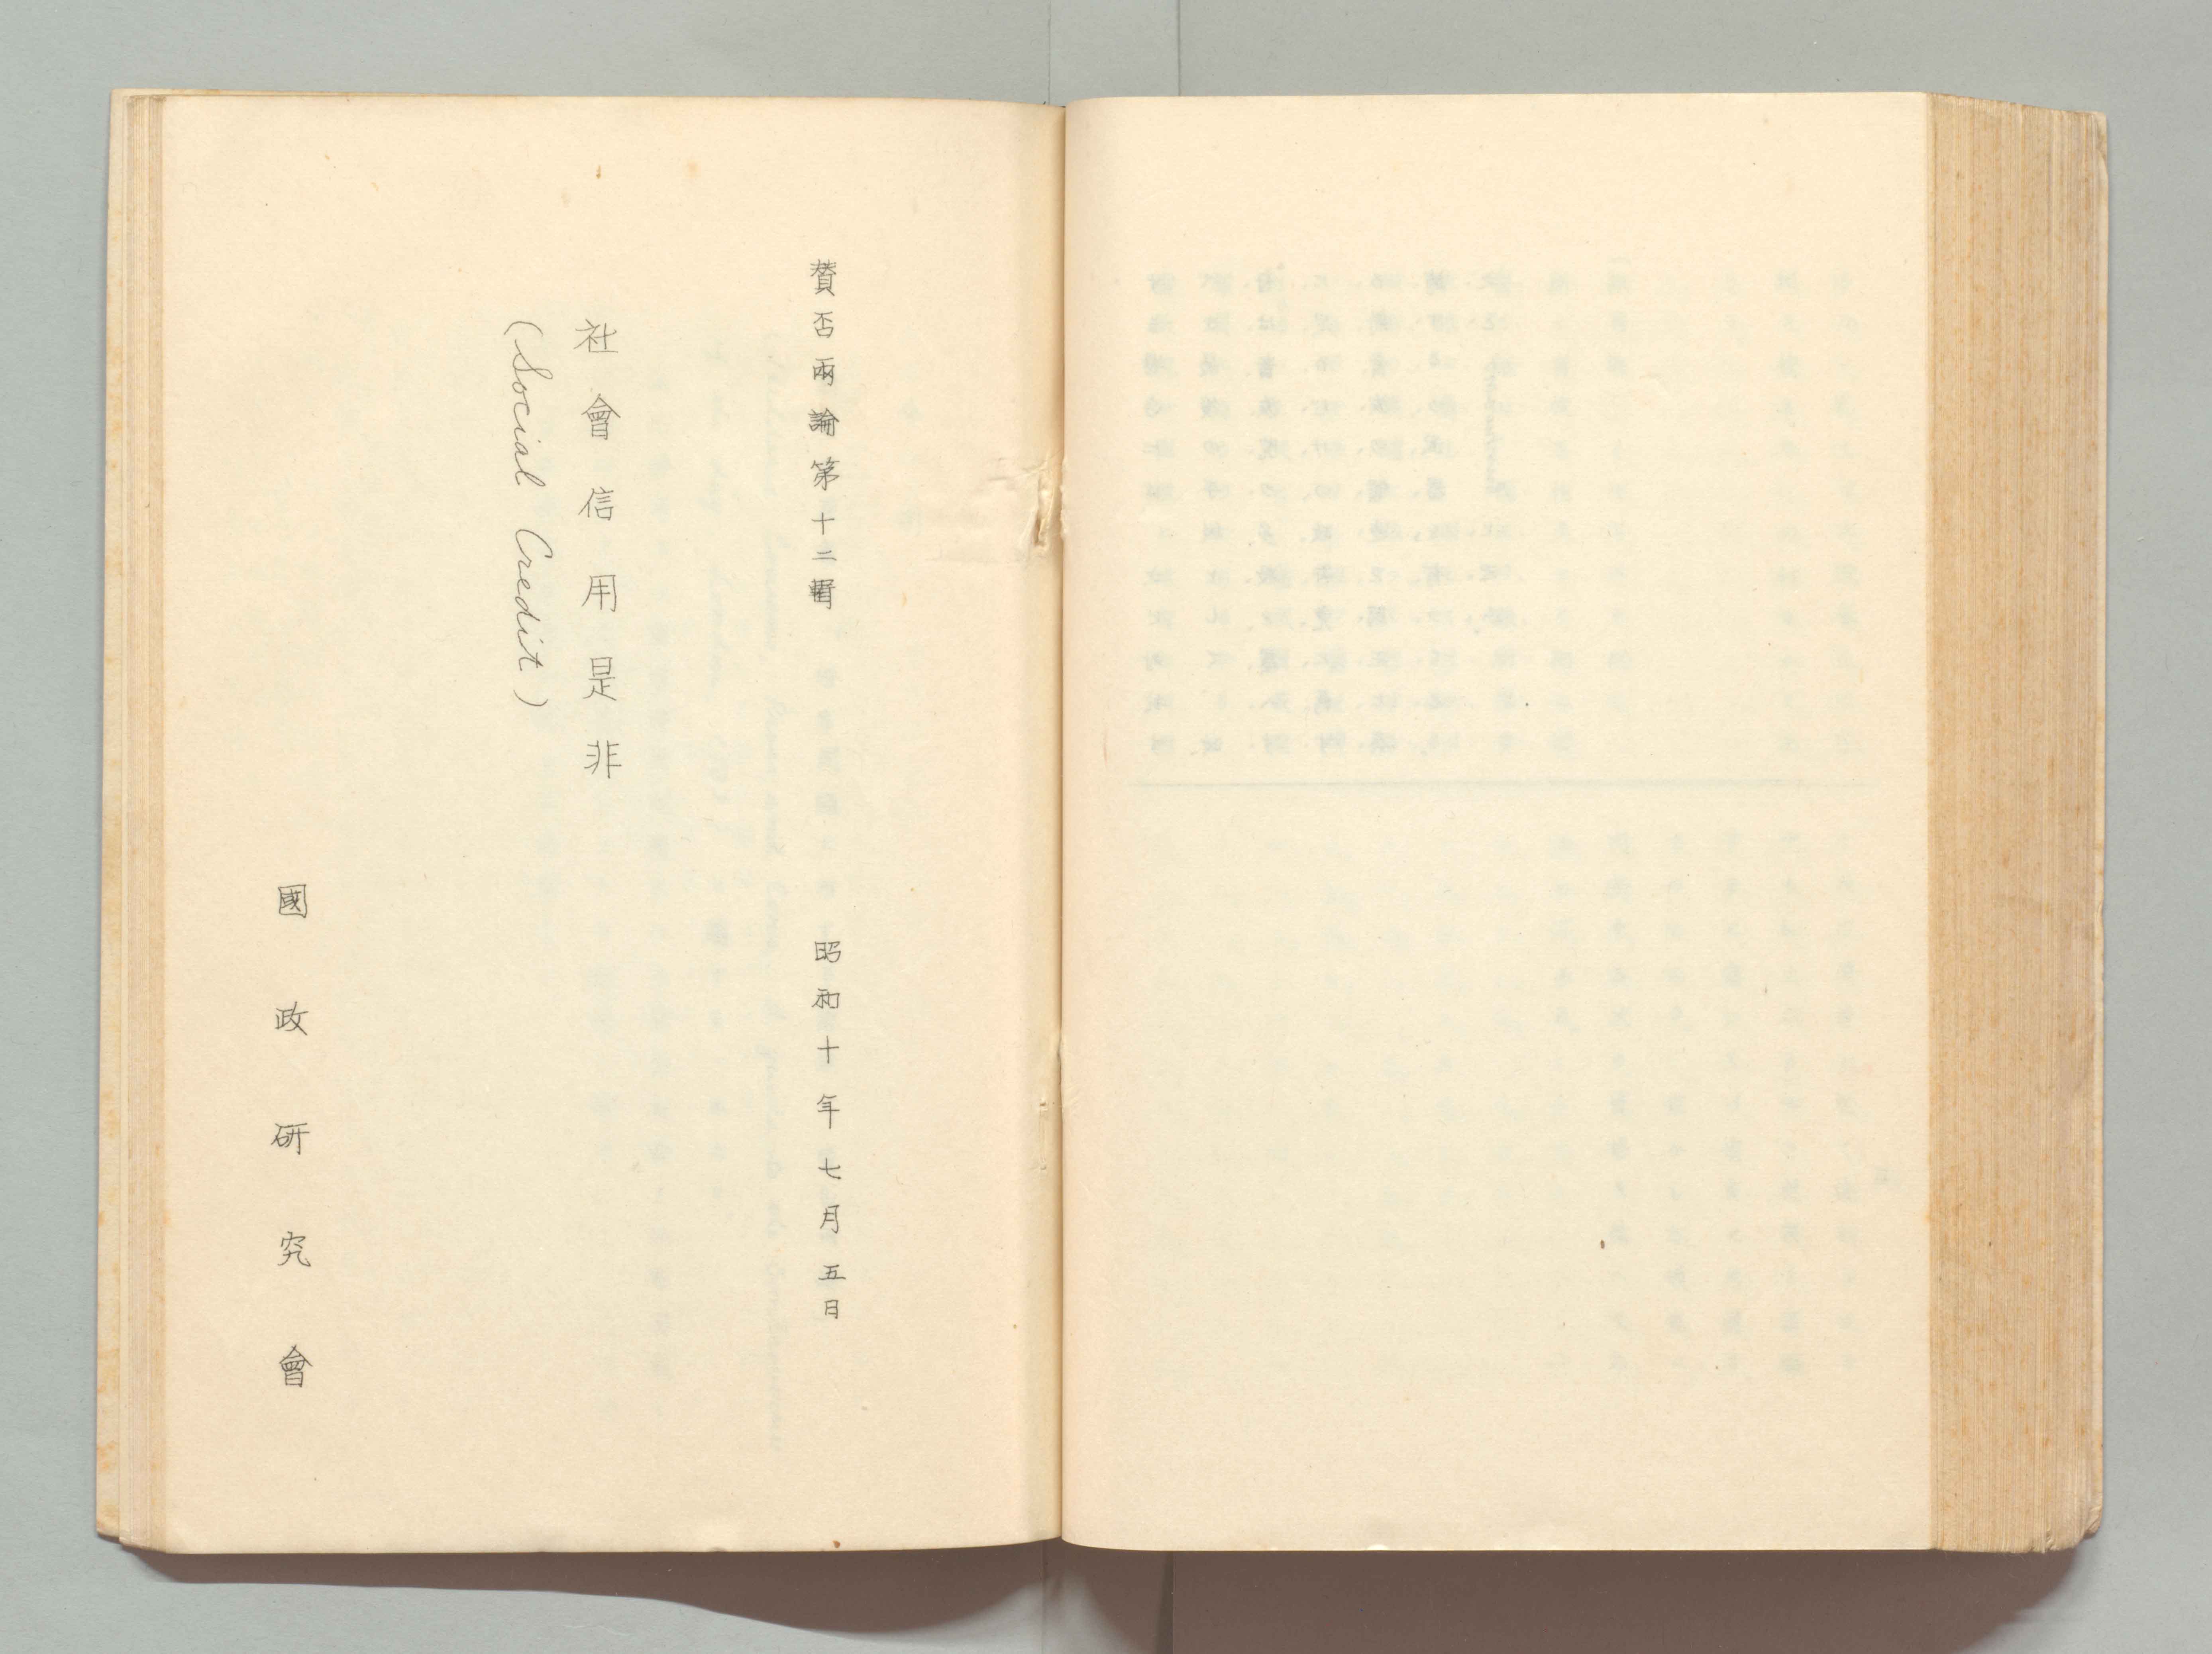 賛否兩論第十二輯　昭和十年七月五日
社會信用是非
(Social Credit)
國政研究會